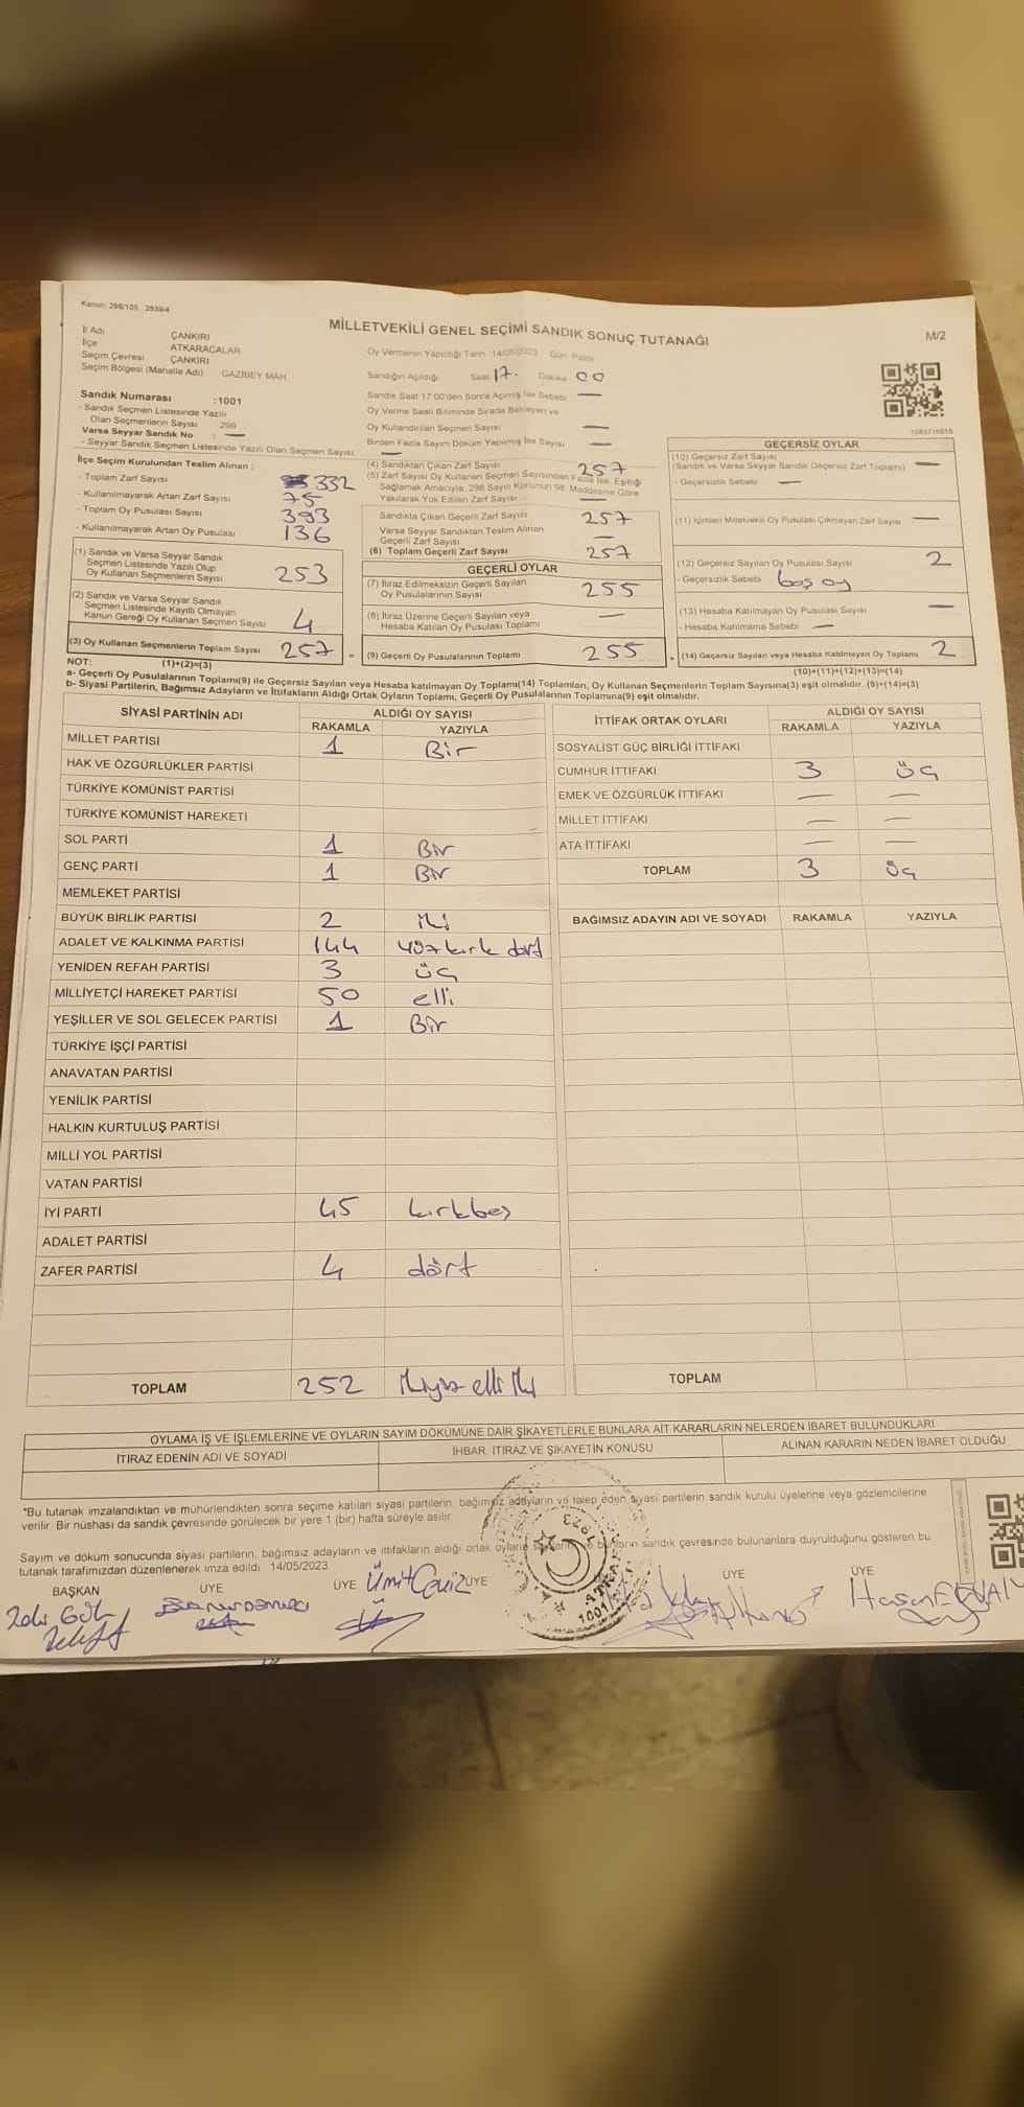 Kanun: 298/105, 2839/4
MİLLETVEKİLİ GENEL SEÇİMİ SANDIK SONUÇ TUTANAĞI
M/2
İl Adı ÇANKIRI
İlçe ATKARACALAR
Seçim Çevresi ÇANKIRI
Seçim Bölgesi (Mahalle Adı) GAZİBEY MAH.
Oy Vermenin Yapıldığı Tarih 14/05/2023 Gün Pazar
Sandığın Açıldığı Saat 17. Dakika 00
Sandık Saat 17:00'den Sonra Açılmış İse Sebebi —
Oy Verme Saati Bitiminde Sırada Bekleyen ve
Oy Kullandırılan Seçmen Sayısı —
Birden Fazla Sayım Döküm Yapılmış İse Sayısı —
Sandık Numarası :1001
- Sandık Seçmen Listesinde Yazılı
Olan Seçmenlerin Sayısı 299
Varsa Seyyar Sandık No : —
- Seyyar Sandık Seçmen Listesinde Yazılı Olan Seçmen Sayısı —
İlçe Seçim Kurulundan Teslim Alınan :
- Toplam Zarf Sayısı 332
- Kullanılmayarak Artan Zarf Sayısı 75
- Toplam Oy Pusulası Sayısı 393
- Kullanılmayarak Artan Oy Pusulası 136
(1) Sandık ve Varsa Seyyar Sandık
Seçmen Listesinde Yazılı Olup
Oy Kullanan Seçmenlerin Sayısı 253
(2) Sandık ve Varsa Seyyar Sandık
Seçmen Listesinde Kayıtlı Olmayan
Kanun Gereği Oy Kullanan Seçmen Sayısı 4
(3) Oy Kullanan Seçmenlerin Toplam Sayısı 257
(4) Sandıktan Çıkan Zarf Sayısı 257
(5) Zarf Sayısı Oy Kullanan Seçmen Sayısından Fazla İse, Eşitliği
Sağlamak Amacıyla, 298 Sayılı Kanunun 98. Maddesine Göre
Yakılarak Yok Edilen Zarf Sayısı —
Sandıkta Çıkan Geçerli Zarf Sayısı 257
Varsa Seyyar Sandıktan Teslim Alınan
Geçerli Zarf Sayısı —
(6) Toplam Geçerli Zarf Sayısı 257
GEÇERLİ OYLAR
(7) İtiraz Edilmeksizin Geçerli Sayılan
Oy Pusulalarının Sayısı 255
(8) İtiraz Üzerine Geçerli Sayılan veya
Hesaba Katılan Oy Pusulası Toplamı —
= (9) Geçerli Oy Pusulalarının Toplamı 255
GEÇERSİZ OYLAR
(10) Geçersiz Zarf Sayısı
(Sandık ve Varsa Seyyar Sandık Geçersiz Zarf Toplamı) —
- Geçersizlik Sebebi —
(11) İçinden Milletvekili Oy Pusulası Çıkmayan Zarf Sayısı —
(12) Geçersiz Sayılan Oy Pusulası Sayısı 2
- Geçersizlik Sebebi boş oy
(13) Hesaba Katılmayan Oy Pusulası Sayısı —
- Hesaba Katılmama Sebebi —
+ (14) Geçersiz Sayılan veya Hesaba Katılmayan Oy Toplamı 2
NOT: (1)+(2)=(3) (10)+(11)+(12)+(13)=(14)
a- Geçerli Oy Pusulalarının Toplamı(9) ile Geçersiz Sayılan veya Hesaba katılmayan Oy Toplamı(14) Toplamları, Oy Kullanan Seçmenlerin Toplam Sayısına(3) eşit olmalıdır. (9)+(14)=(3)
b- Siyasi Partilerin, Bağımsız Adayların ve İttifakların Aldığı Ortak Oyların Toplamı, Geçerli Oy Pusulalarının Toplamına(9) eşit olmalıdır.
SİYASİ PARTİNİN ADI ALDIĞI OY SAYISI
RAKAMLA YAZIYLA
MİLLET PARTİSİ 1 Bir
HAK VE ÖZGÜRLÜKLER PARTİSİ
TÜRKİYE KOMÜNİST PARTİSİ
TÜRKİYE KOMÜNİST HAREKETİ
SOL PARTİ 1 Bir
GENÇ PARTİ 1 Bir
MEMLEKET PARTİSİ
BÜYÜK BİRLİK PARTİSİ 2 iki
ADALET VE KALKINMA PARTİSİ 144 yüz kırk dört
YENİDEN REFAH PARTİSİ 3 üç
MİLLİYETÇİ HAREKET PARTİSİ 50 elli
YEŞİLLER VE SOL GELECEK PARTİSİ 1 Bir
TÜRKİYE İŞÇİ PARTİSİ
ANAVATAN PARTİSİ
YENİLİK PARTİSİ
HALKIN KURTULUŞ PARTİSİ
MİLLİ YOL PARTİSİ
VATAN PARTİSİ
İYİ PARTİ 45 kırkbeş
ADALET PARTİSİ
ZAFER PARTİSİ 4 dört
TOPLAM 252 ikiyüz elli iki
İTTİFAK ORTAK OYLARI ALDIĞI OY SAYISI
RAKAMLA YAZIYLA
SOSYALİST GÜÇ BİRLİĞİ İTTİFAKI
CUMHUR İTTİFAKI 3 üç
EMEK VE ÖZGÜRLÜK İTTİFAKI — —
MİLLET İTTİFAKI — —
ATA İTTİFAKI — —
TOPLAM 3 üç
BAĞIMSIZ ADAYIN ADI VE SOYADI RAKAMLA YAZIYLA
TOPLAM
OYLAMA İŞ VE İŞLEMLERİNE VE OYLARIN SAYIM DÖKÜMÜNE DAİR ŞİKAYETLERLE BUNLARA AİT KARARLARIN NELERDEN İBARET BULUNDUKLARI
İTİRAZ EDENİN ADI VE SOYADI İHBAR, İTİRAZ VE ŞİKAYETİN KONUSU ALINAN KARARIN NEDEN İBARET OLDUĞU
*Bu tutanak imzalandıktan ve mühürlendikten sonra seçime katılan siyasi partilerin, bağımsız adayların ve talep eden siyasi partilerin sandık kurulu üyelerine veya gözlemcilerine
verilir. Bir nüshası da sandık çevresinde görülecek bir yere 1 (bir) hafta süreyle asılır.
Sayım ve döküm sonucunda siyasi partilerin, bağımsız adayların ve ittifakların aldığı ortak oyların sandık çevresinde bulunanlara duyurulduğunu gösteren bu
tutanak tarafımızdan düzenlenerek imza edildi. 14/05/2023
BAŞKAN ÜYE ÜYE ÜYE ÜYE ÜYE
1923
1001